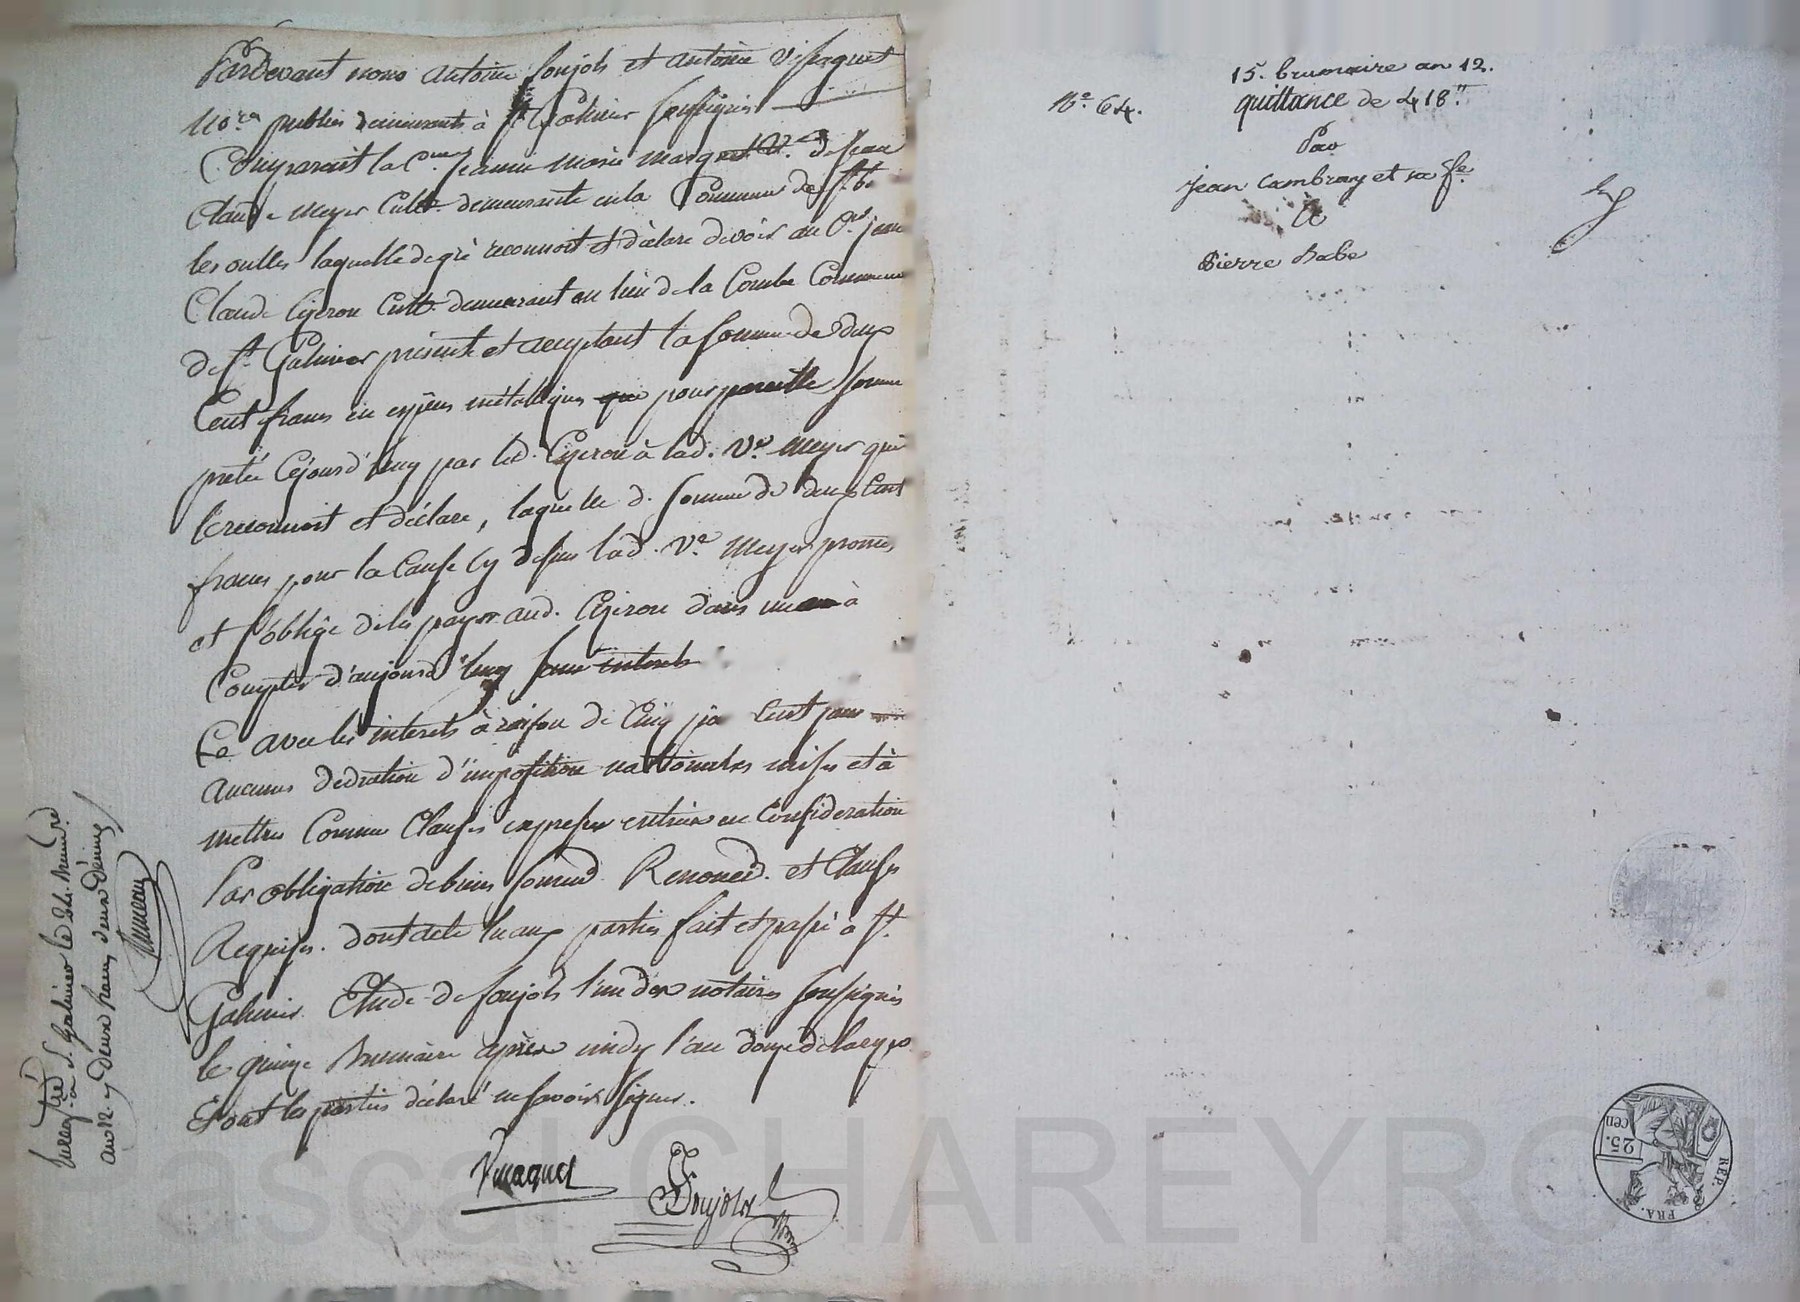 Pardevant nous Antoine Soujols et Antoine Vissaguet
No.res publics demeurants à St Galmier soussignés
Comparait la C.ne Jeanne Marie Marquet V.e de Jean
Claude Meyer Cult.r demeurante en la Commune de St. Bt.
les oulles laquelle de gré reconnoit et déclare devoir au C.n jean
Claude Cizeron Cult.r demeurant au lieu de la Combe Commune
de St. Galmier présent et acceptant la somme de deux
Cent francs en espèces métalliques que pour pareille somme
pretée Cejourd'huy par led. Cizeron à lad. V.e Meyer qui
le reconnoit et déclare, laquelle d. somme de deux Cent
francs pour la Cause Cy dessus lad. V.e Meyer promet
et s'oblige de les payer aud. Cizeron dans un an à
Compter d'aujourd'huy sans interets
Ce avec les interets à raison de Cinq par Cent sans
aucunes deduction d'imposition nationales mises et à
mettre Comme Clauses expresses entrées en Consideration
Par obligation de biens soumis.d Renonc.d et Clauses
Requises. dont acte lu aux parties fait et passé à St.
Galmier Etude de Soujols l'un des notaires soussignés
le quinze Brumaire après midy l'an douze de la rep.e
Et ont les parties déclaré ne savoir signer.
Vissaguet
Soujols
Enregistré à St. Galmier le 24. Brumaire
an 12 deux francs
15. brumaire an 12.
N.o 64.
quittance de 418"
Par
Jean Cambray et sa f.e
A
Pierre Babe
25.
cen
REP.
FRA.
Pascal CHAREYRON